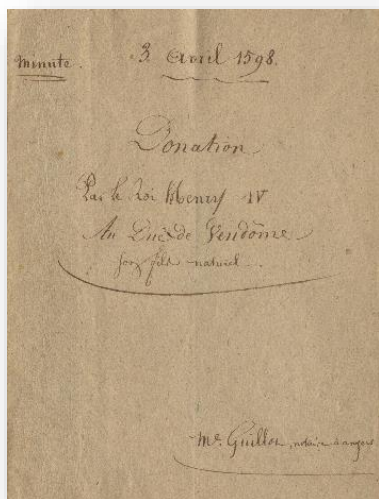 Minute.
3. Avril 1598.
Donation
Par le roi Henry IV
Au Duc de Vendôme
son fils naturel
Me. Guillot, notaire à angers